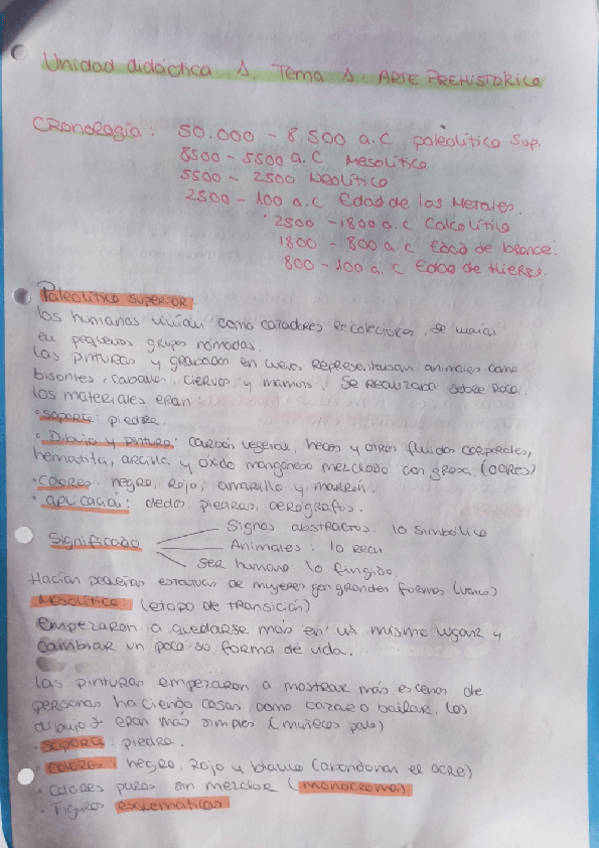 Unidad didáctica 1. Tema 1. ARTE PREHISTÓRICO
Cronología: 50.000 - 8.500 a.C paleolítico Sup.
8500 - 5500 a.C Mesolítico
5500 - 2500 Neolítico
2500 - 100 a.C Edad de los Metales.
2500 - 1800 a.C Calcolítico
1800 - 800 a.C Edad de bronce.
800 - 100 a.C Edad de Hierro.
Paleolítico Superior:
los humanos vivían como cazadores recolectores, se movían
en pequeños grupos nómadas.
Las pinturas y grabados en cuevas representaban animales como
bisontes, caballos, ciervos, y mamuts. Se realizaba sobre roca.
los materiales eran
· soporte: piedra.
· Dibujo y pintura: carbón vegetal, heces y otros fluidos corporales,
hematita, arcilla y óxido manganeso mezclado con grasa. (OCRES)
· Colores: negro, rojo, amarillo y marrón.
· aplicación: dedos, piedras, aerógrafos.
· Significado
Signos abstractos: lo simbólico
Animales: lo real
Ser humano: lo fingido.
Hacían pequeñas estatuas de mujeres con grandes formas (venus)
Mesolítico: (etapa de transición)
empezaron a quedarse más en un mismo lugar y
cambiar un poco su forma de vida.
las pinturas empezaron a mostrar más escenas de
personas haciendo cosas como cazar o bailar. los
dibujos eran más simples (muñecos palo)
· soporte: piedra.
· colores negro, rojo y blanco (abandonan el ocre)
· Colores puros sin mezclar (monocromas)
· Figuras esquemáticas